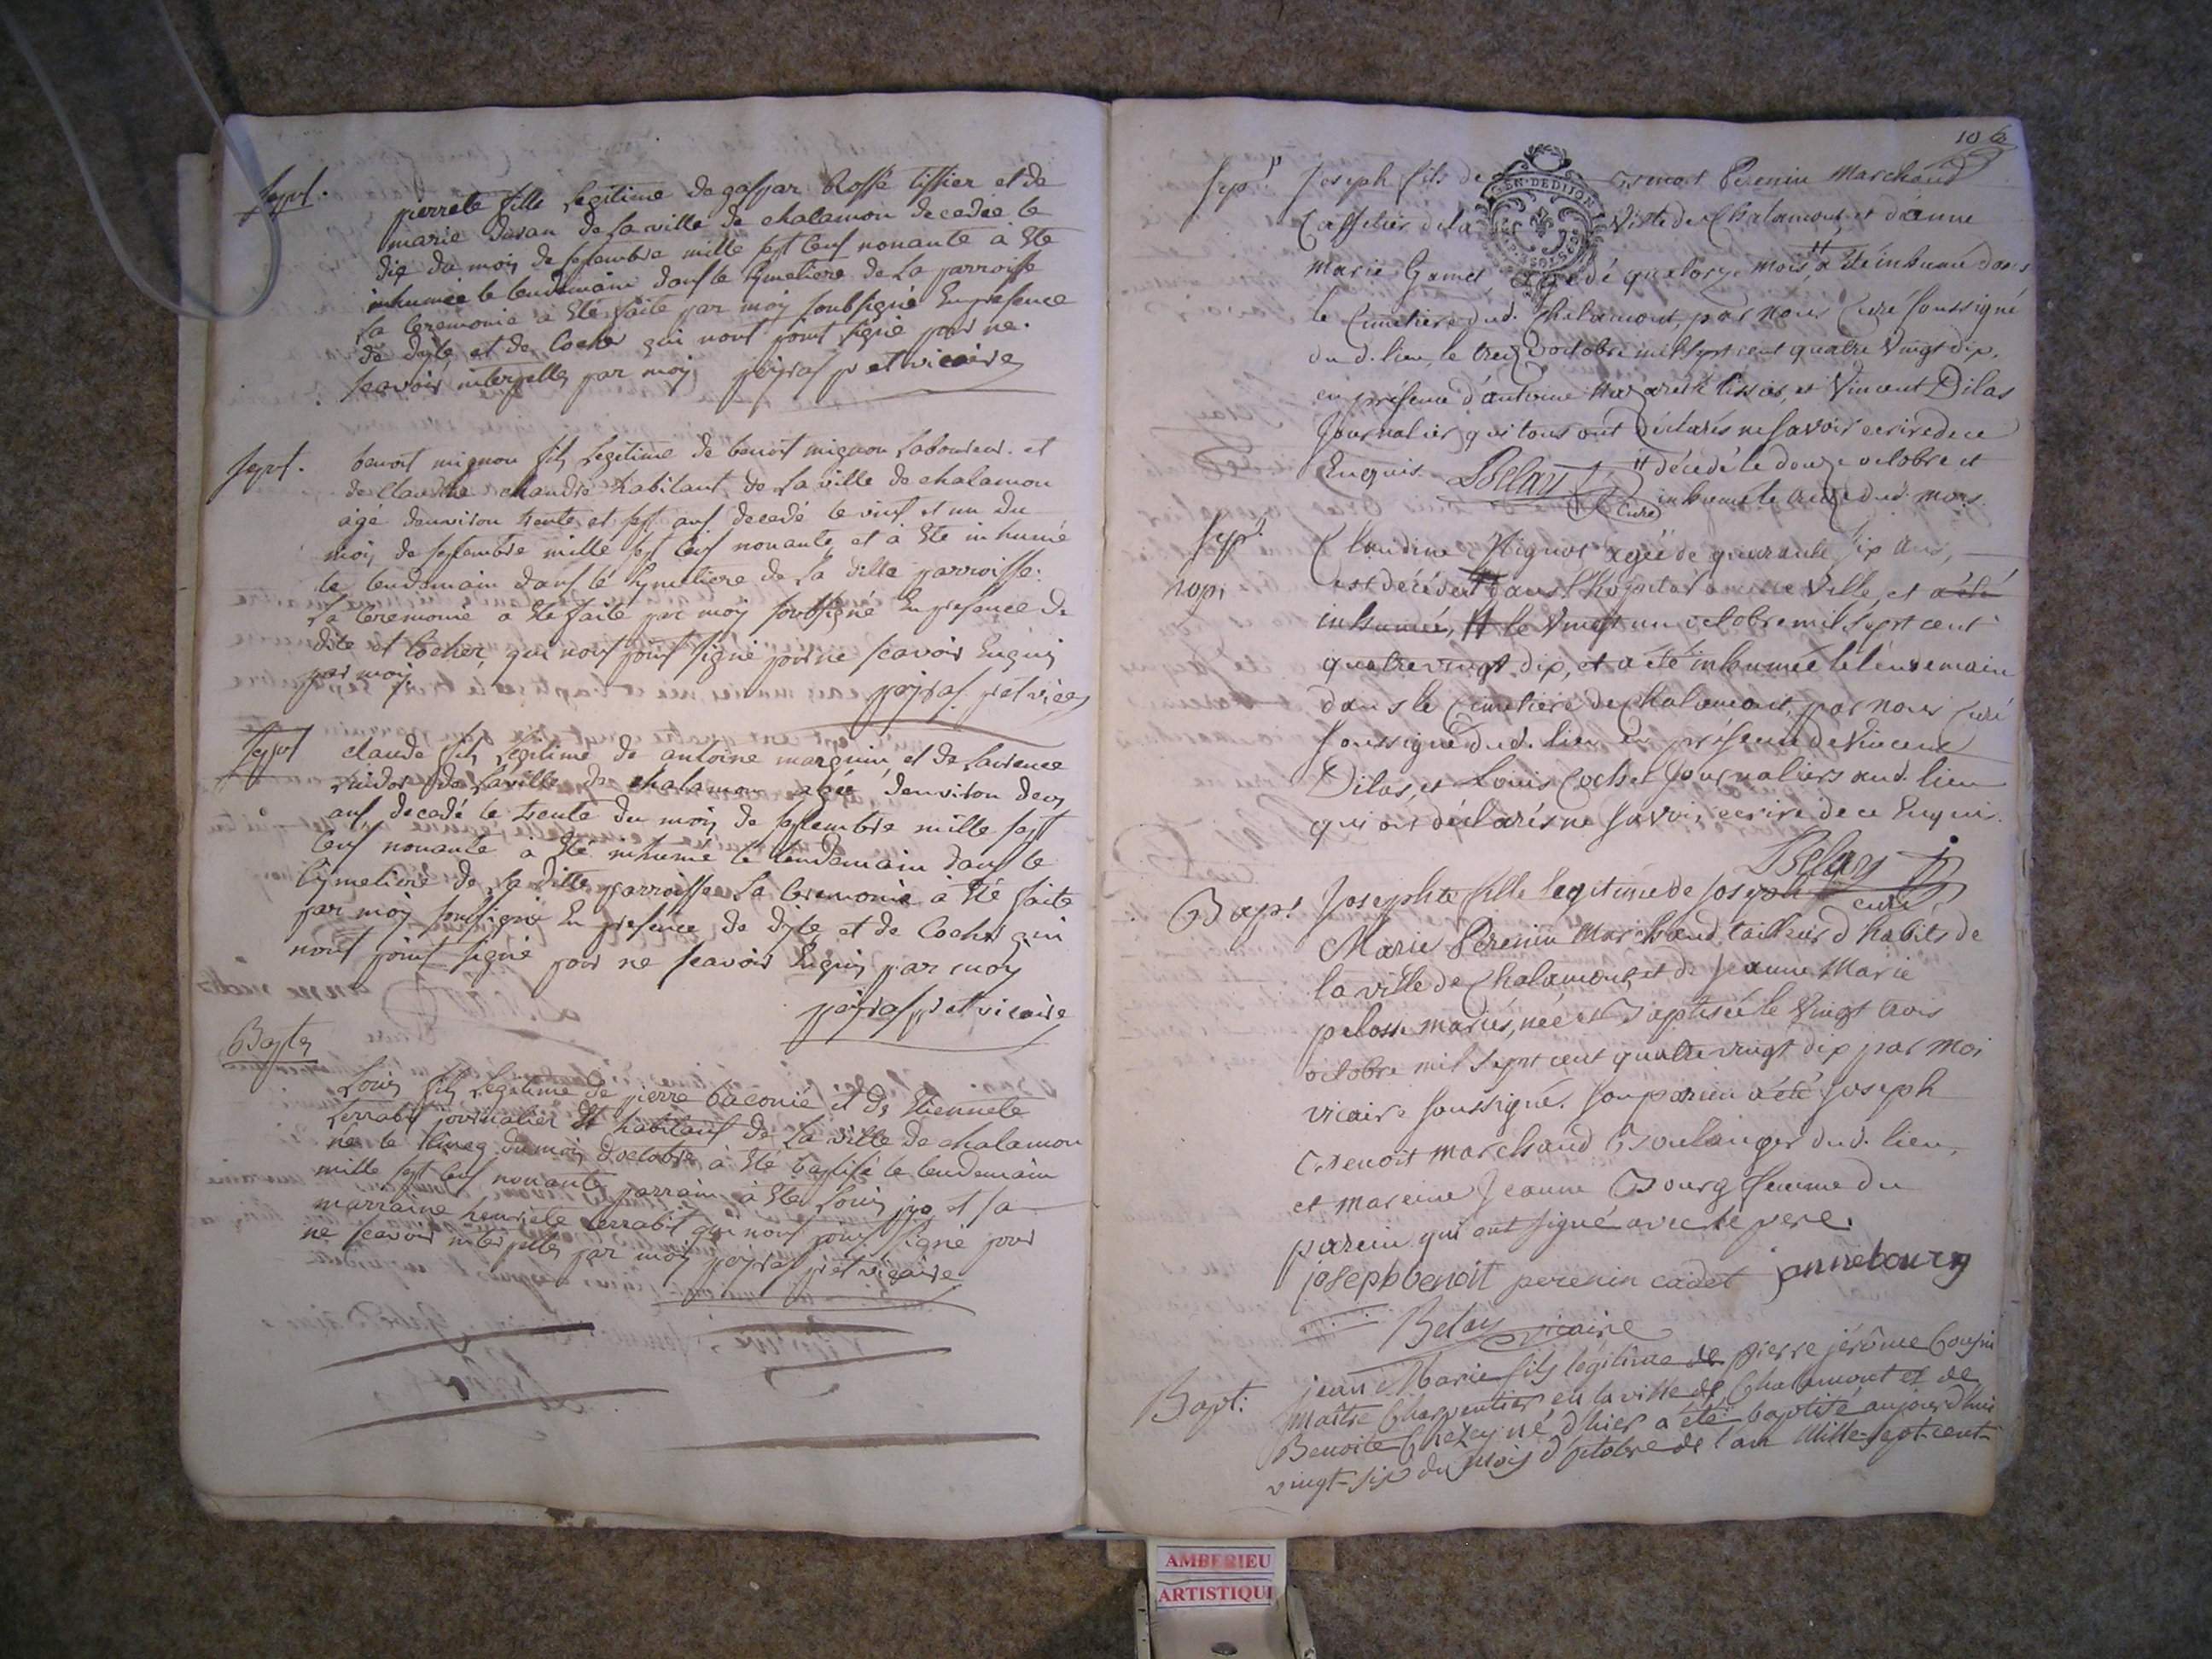 Sept.
pierrete fille legitime de gaspar Rossé tissier et de
marie de la ville de chalamon decedée le
dix du mois de septembre mille sept cens nonante à été
inhumée le lendemain dans le cymetiere de la parroisse
la ceremonie a été faite par moy soubsigné en presence
de dyle et de Cocher qui nont point signé pour ne
scavoir interpellés par moy pr et vicaire
Sept.
benoit mignon fils legitime de benoit mignon laboureur et
de Claudine chandié habitant de la ville de chalamon
agé denviron trente et sept ans decedé le vint et un du
mois de septembre mille sept cens nonante et à été inhumé
le lendemain dans le cymetiere de la ditte parroisse.
la ceremonie a été faite par moy soubsigné en presence de
dile et Cocher, qui nont point signé pour ne scavoir Enquis
par moy. pr et vices
Sept
claude fils legitime de antoine marguin et de laurence
de la ville de chalamon agée denviron deux
ans decedé le trente du mois de septembre mille sept
cens nonante a été inhumé le lendemain dans le
cymetiere de la ditte parroisse la ceremonie à été faite
par moy soubsigné En presence de dyle et de Cocher qui
nont point signé pour ne scavoir Enquis par moy
pr et vicaire
Baptes
Louis fils legitime de pierre baconié et de Etiennete
Terrabit journalier et habitans de la ville de chalamon
né le cincq du mois doctobre a été baptisé le lendemain
mille sept cens nonante parrain à été Louis et sa
marraine henriete terrabit qui nont point signé pour
ne scavoir interpelés par moy pr et vicaire
106
Sept
Joseph fils de Benoit Perenin Marchand
Caffetier de la GEN·DE DIJON Ville de Chalamont et d'anne
Marie Gamet, agé de quatorze mois # a été inhumé dans
le Cimetiere dud. Chalamont, par nous Curé soussigné
du d. lieu, le treize octobre mil sept cent quatre vingt dix,
en présence d'antoine Nazareth tissier, et Vincent Dilas
Journalier, qui tous ont déclarés ne savoir ecrire de ce
Enquis. Belay curé # décédé le douze octobre et
inhumé le treize dud. mois.
Sept.
hopi
Claudine Mignot agée de quarante six ans,
est décédée dans l'hopital de cette Ville, et a été
inhumée, # le vingt un octobre mil sept cent
quatre vingt dix, et a été inhumée le lendemain
dans le Cimetiere de Chalamont, par nous Curé
soussigné dud. lieu en présence de Vincent
Dilas, et Louis Cochet Journaliers aud. lieu
qui ont déclarés ne savoir ecrire de ce Enquis.
Belay curé
Bapt
Josephte fille legitime de Joseph
Marie Perenin Marchand tailleur d'habits de
la ville de Chalamont, et de Jeanne Marie
pelosse mariés, née et Baptisée le vingt trois
octobre mil sept cent quatre vingt dix par moi
vicaire soussigné. son parein a été Joseph
Benoit marchand Boulanger dud. lieu,
et mareine Jeanne Bourg femme du
parein qui ont signé avec le pere.
joseph benoit perenin cadet annebourg
Belay vicaire
Bapt.
jean Marie fils légitime de pierre jérôme Cousin
maître Charpentier en la ville de Chalamont et de
Benoite né d'hier a été baptisé aujourd'hui
vingt-six du mois d'octobre de l'an Mille-sept-cent-
AMBERIEU
ARTISTIQU